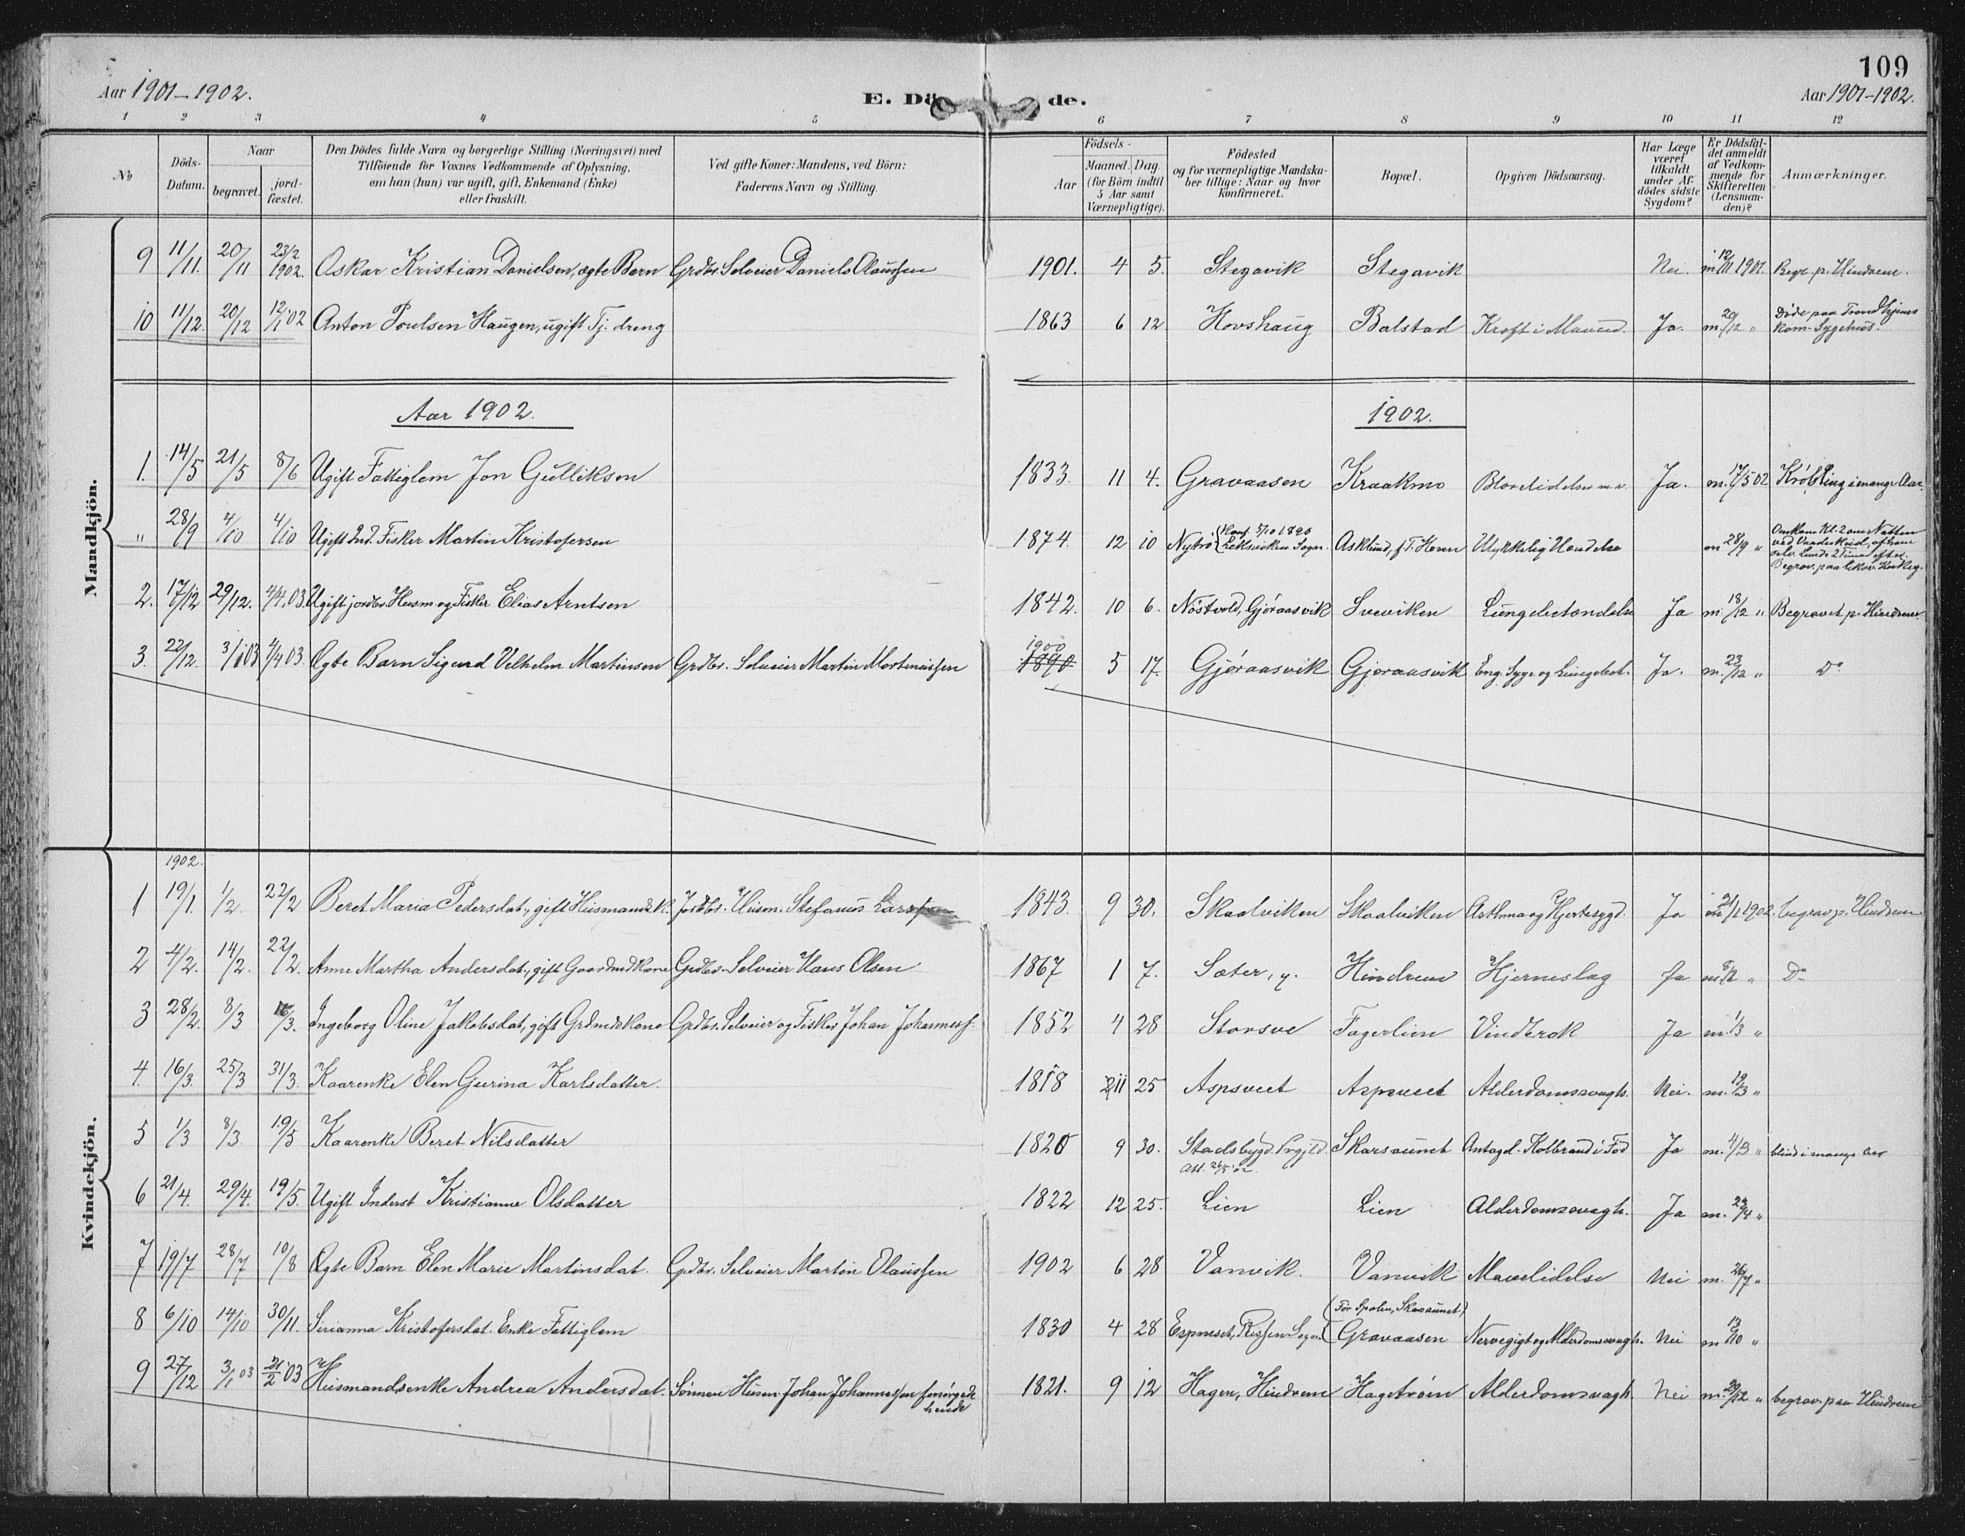 109
Aar 1901-1902.
E. Dö de.
Aar 1901-1902.
1 2 3 4 5 6 7 8 9 10 11 12
№
Döds-Datum.
Naar
begravet.
jordfæstet.
Den Dödes fulde Navn og borgerlige Stilling (Næringsvei) med
Tilföiende for Voxnes Vedkommende af Oplysning,
om han (hun) var ugift, gift, Enkemand (Enke)
eller fraskilt.
Ved gifte Koner: Mandens, ved Börn:
Faderens Navn og Stilling.
Födsels-
Aar
Maaned. Dag.
(for Börn indtil
5 Aar samt
Værnepligtige).
Födested
og for værnepligtige Mandskaber tillige: Naar og hvor
konfirmeret.
Bopæl.
Opgiven Dödsaarsag.
Har Læge
været
tilkaldt
under Afdödes sidste
Sygdom?
Er Dödsfaldet anmeldt
af Vedkommende for
Skifteretten
(Lensmanden)?
Anmærkninger.
Mandkjön.
9 11/11. 20/11 23/2 1902. Oskar Kristian Danielsen, ægte Barn Grdbr. Selveier Daniels Olaussen 1901. 4 5. Stegavik Stegavik Nei. m 12/11 1901. Begr. p. Hindrem.
10 11/12. 20/12 12/1 02 Anton Poulsen Haugen, ugift Tj. dreng 1863 6 12 Hovshaug Balstad Kræft i Maven. Ja. m. 20/12 " Döde paa Trondhjems Kom. Sygehus.
Aar 1902.
1902.
1. 14/5 21/5 8/6 Ugift Fattiglem Jon Gulliksen 1833. 11 4. Gravaasen Kraakmo Ja. m. 17/5 02 Krøbling i mange Aar.
" 28/9 4/10 4/10 Ugift Ind. Fisker Martin Kristofersen 1874. 12 10 Nytrø (Konf. 5/10 1890 Leksviken Sogn. Asklund, f. T. Hemn Ulykkelig Hændelse m 28/9 " Omkom Kl. 2 om Natten
2. 17/12 29/12. 4/4. 03. Ugift jordbr. Husm. og Fisker Elias Arntsen 1842. 10 6. Nöstvold, Gjøraasvik Sveviken Lungebetændelse Ja m. 18/12 " Begravet p. Hindrem
3. 22/12. 3/1 03 4/4 03. Ægte Barn Sigurd Vilhelm Martinsen Grdbr. Selveier Martin Mortinussen 1900 1890 5 17. Gjøraasvik Gjøraasvik Eng. Syge og Lungebet. Ja. m. 23/12 " Do
Kvindekjön.
1902.
1 19/1. 1/2. 22/2 Beret Maria Pedersdat., gift Husmandsk. Jordbr. Husm. Stefanus Larssen 1843. 9 30. Skaalviken Skaalviken Asthma og Hjertesygd. Ja m 21/1 1902. begrav. p. Hindrem
2 4/2. 14/2. 22/2. Anne Martha Andersdat., gift Gaardmdkone Grdbr. Selveier Hans Olsen 1867 1 7. Sæter, y. Hindrem Hjerneslag Ja m 8/2 " Do
3 28/2. 8/3 16/3. Ingeborg Oline Jakobsdat., gift Grdmdskone Grdbr. Selveier og Fisker Johan Johannesf. 1852 4 28 Storsve Fagerlien Vindtrok Ja m. 1/3 "
4. 16/3. 25/3 31/3. Kaarenke Elen Gurina Karlsdatter. 1818 11 25 Aspsveet Aspsveet Alderdomssvagh. Nei. m. 19/3 "
5 1/3 8/3. 19/5 Kaarenke Beret Nilsdatter 1820 9 30. Stadsbygd. Prgjld. Att. 26/5 02. Skarsaunet Antagel. Kolbrand i Fod Ja m. 4/3 " blind i mange Aar
6 21/4. 29/4. 19/5. Ugift Inderst Kristianna Olsdatter 1822 12 25. Lien Lien Alderdomssvagh. Ja m. 22/4 "
7 19/7 28/7 10/8 Ægte Barn Elen Marie Martinsdat. Grdbr. Selveier Martin Olaussen 1902 6 28 Vanvik. Vanvik Mavelidelse Nei m. 26/7 "
8 6/10 14/10 30/11. Sirianna Kristofersdat. Enke Fattiglem 1830 4 28 Espneset, Rissen Sogn. (För Spolen, Skarsaunet) Gravaasen Nervegigt og Alderdomssvagh. Nei m 13/10 "
9 27/12 3/1 03 21/2 03 Husmandsenke Andrea Andersdat. Sönnen Husm. Johan Johannessen forsörgede hende 1821. 9 12 Hagen, Hindrem Hagetrøen Alderdomssvagh. Nei m. 29/12 " begrav. paa Hindrem